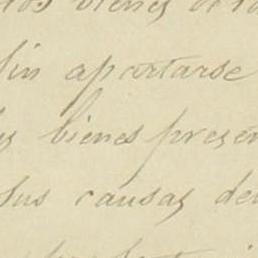 los bienes de la
sin apartarse
los bienes presen
sus causas de